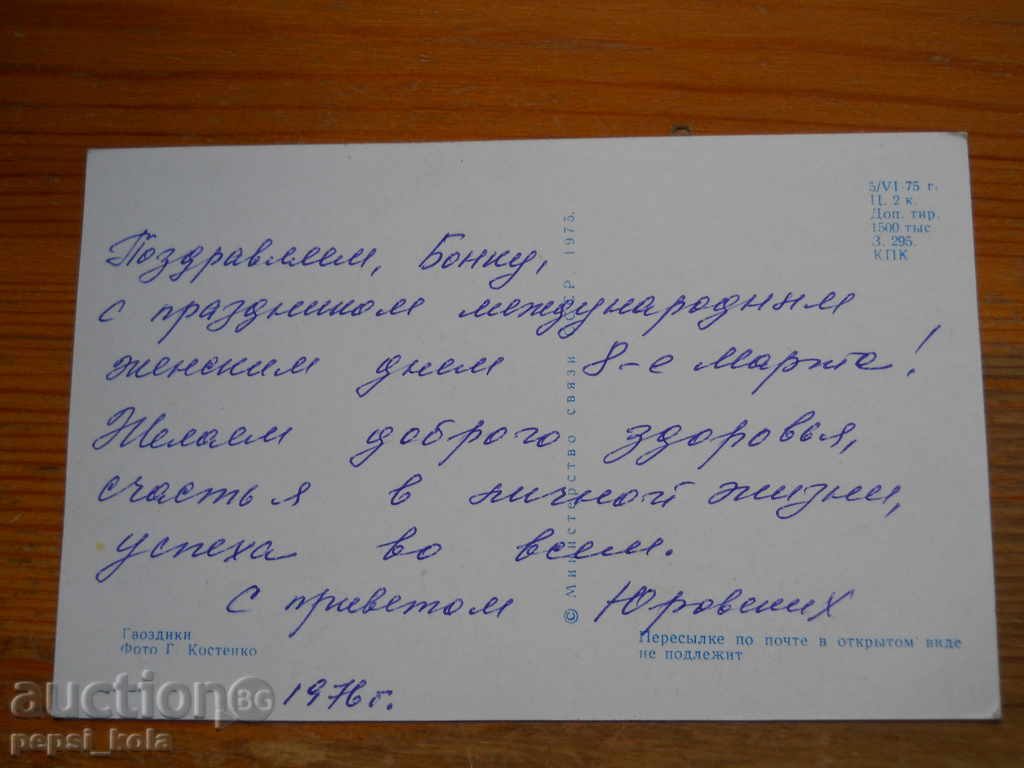 5/VI-75 г.
Ц. 2 к.
Доп. тир.
1500 тыс
З. 295.
КПК
Поздравляем, Бонку,
с праздником международным
женским днем 8-е Марта!
Желаем доброго здоровья,
счастья в личной жизни,
успеха во всем.
С приветом Юровских
© Министерство связи СССР. 1975.
Гвоздики
Фото Г. Костенко
Пересылке по почте в открытом виде
не подлежит
1976 г.
auction BG
pepsi_kola